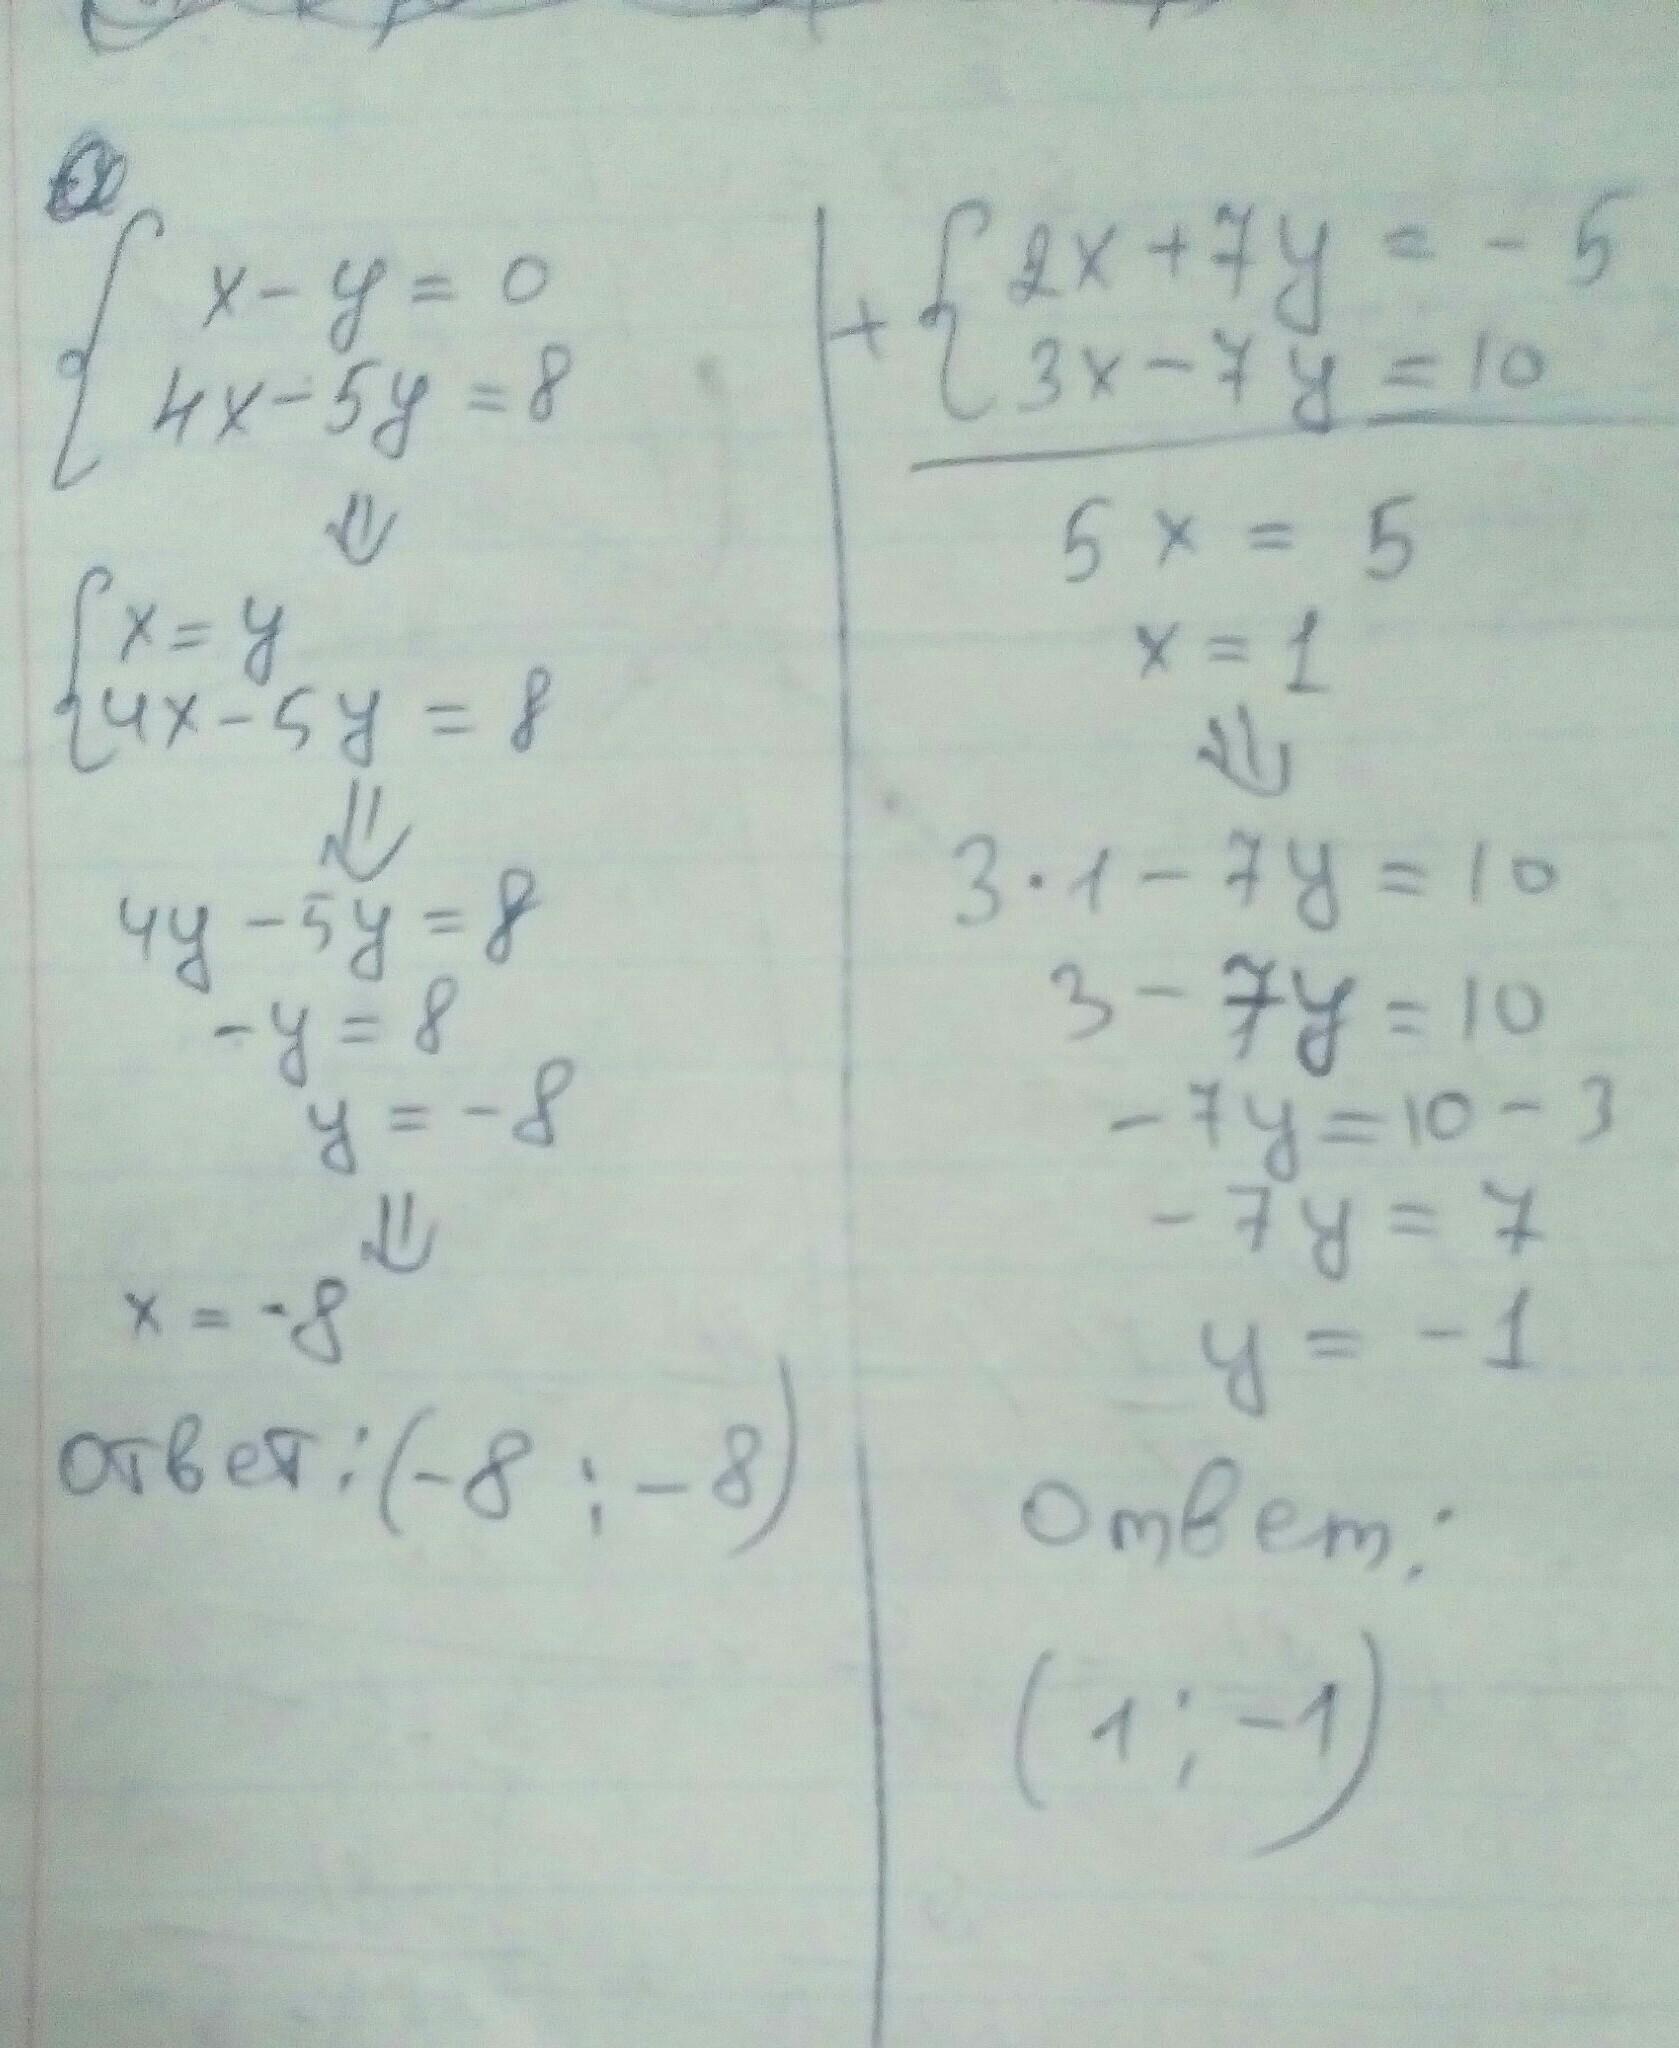 x - y = 0
4x - 5y = 8
⇓
x = y
4x - 5y = 8
⇓
4y - 5y = 8
-y = 8
y = -8
⇓
x = -8
ответ: (-8 ; -8)
+ 2x + 7y = -5
3x - 7y = 10
5x = 5
x = 1
⇓
3 · 1 - 7y = 10
3 - 7y = 10
-7y = 10 - 3
-7y = 7
y = -1
Ответ:
(1 ; -1)